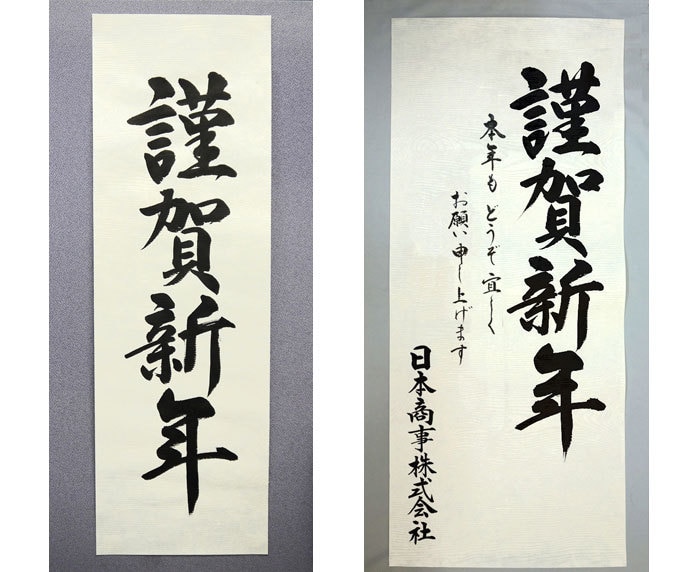 謹賀新年
謹賀新年
本年もどうぞ宜しく
お願い申し上げます
日本商事株式会社